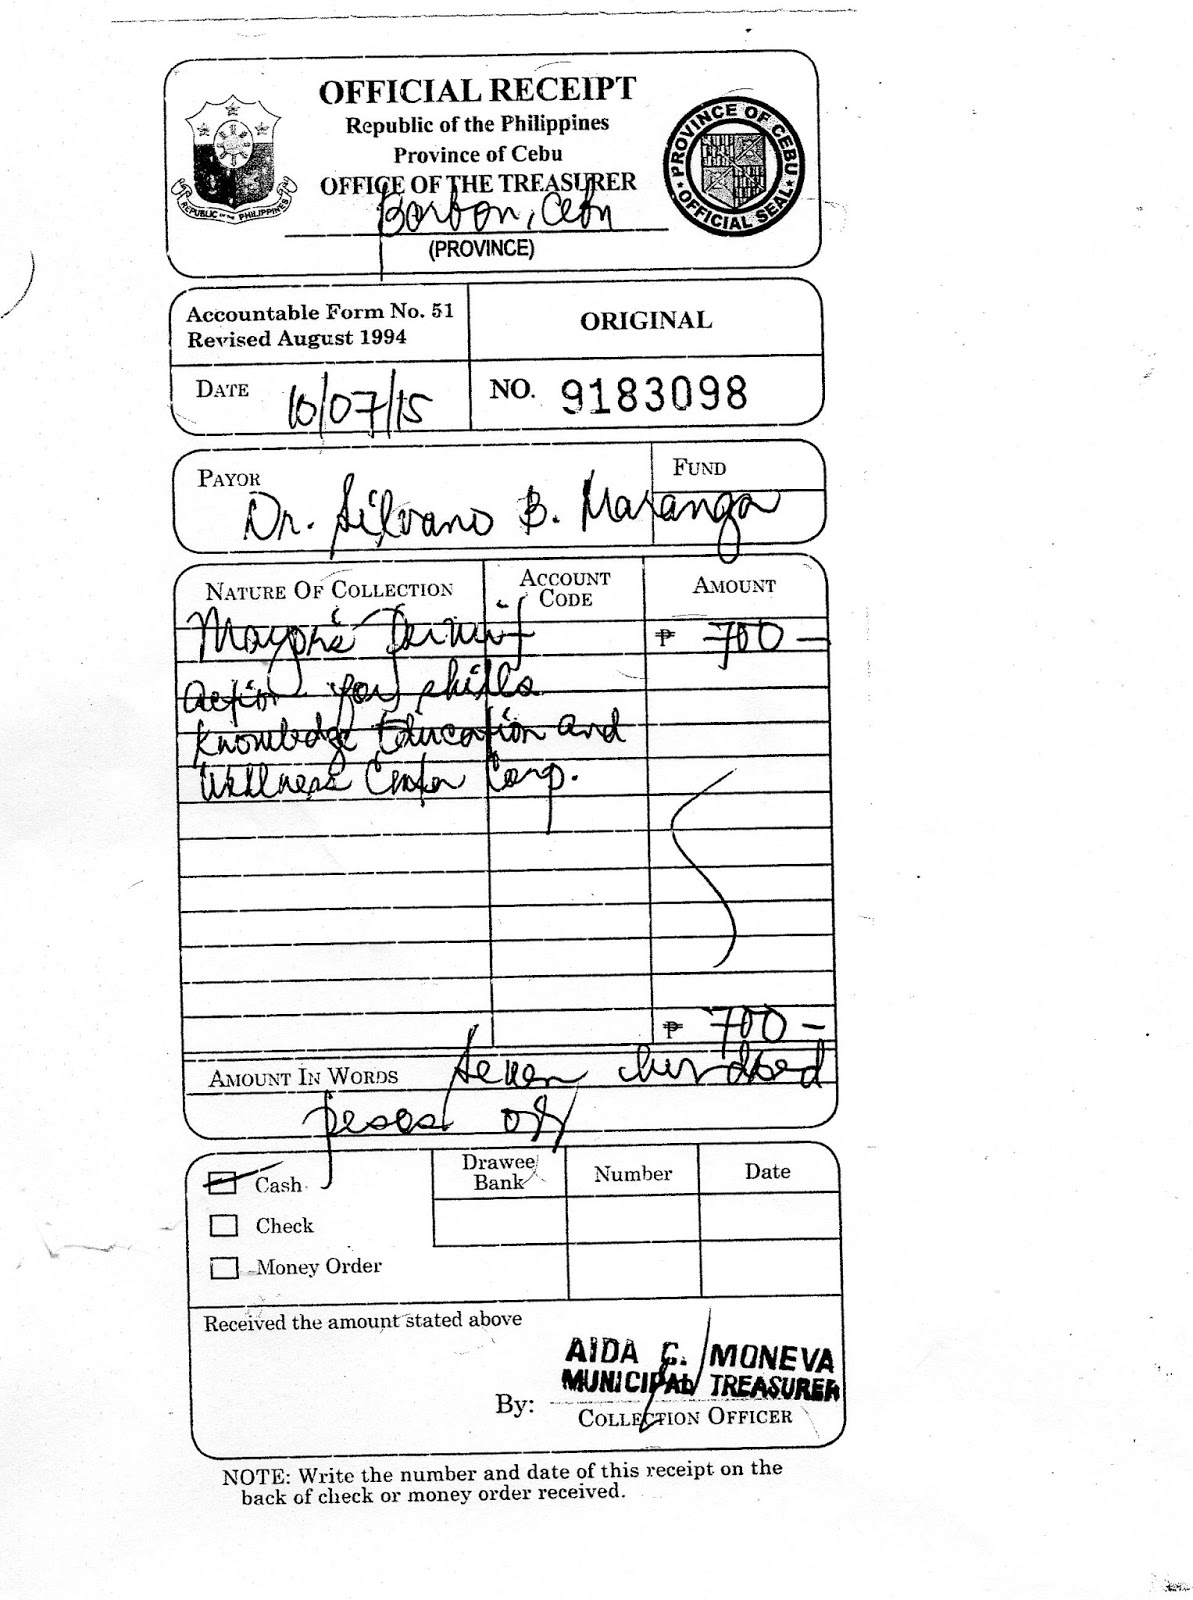 OFFICIAL RECEIPT
Republic of the Philippines
Province of Cebu
OFFICE OF THE TREASURER
Borbon, Cebu
(PROVINCE)
REPUBLIC OF THE PHILIPPINES
PROVINCE OF CEBU
OFFICIAL SEAL
Accountable Form No. 51
Revised August 1994
ORIGINAL
DATE 10/07/15
NO. 9183098
PAYOR
FUND
Dr. Silvano B. Maranga
NATURE OF COLLECTION
ACCOUNT CODE
AMOUNT
Mayor's Permit ₱ 700 –
Action for skills
Knowledge Education and
Wellness Center Corp.
₱ 700 –
AMOUNT IN WORDS Seven hundred
pesos only
Cash
Check
Money Order
Drawee Bank
Number
Date
Received the amount stated above
AIDA C. MONEVA
MUNICIPAL TREASURER
By:
COLLECTION OFFICER
NOTE: Write the number and date of this receipt on the
back of check or money order received.